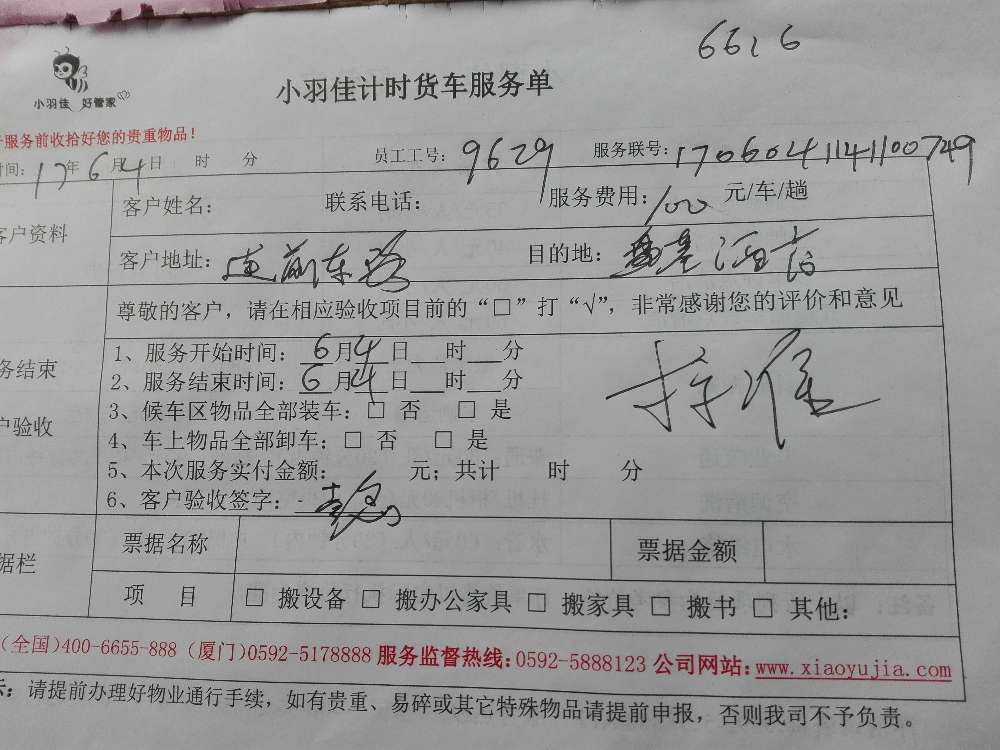 6616
小羽佳 好管家
小羽佳计时货车服务单
服务前收拾好您的贵重物品！
时间：17年6月4日 时 分 员工工号：9629 服务联号：1706041141100749
客户资料
客户姓名： 联系电话： 服务费用：100元/车/趟
客户地址：莲前东路 目的地：酒店
尊敬的客户，请在相应验收项目前的“□”打“√”，非常感谢您的评价和意见
务结束
户验收
1、服务开始时间：6月4日___时___分
2、服务结束时间：6月4日___时___分
3、候车区物品全部装车：□ 否 □ 是
4、车上物品全部卸车：□ 否 □ 是
5、本次服务实付金额： 元；共计 时 分
6、客户验收签字：
据栏
票据名称 票据金额
项 目 □ 搬设备 □ 搬办公家具 □ 搬家具 □ 搬书 □ 其他：
（全国)400-6655-888（厦门)0592-5178888 服务监督热线：0592-5888123 公司网站：www.xiaoyujia.com
示：请提前办理好物业通行手续，如有贵重、易碎或其它特殊物品请提前申报，否则我司不予负责。